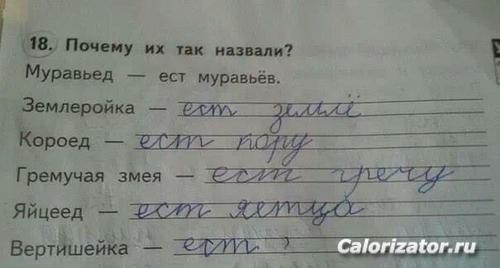 18. Почему их так назвали?
Муравьед — ест муравьёв.
Землеройка — ест землё
Короед — ест кору
Гремучая змея — ест гречу
Яйцеед — ест яетца
Вертишейка — ест
Calorizator.ru